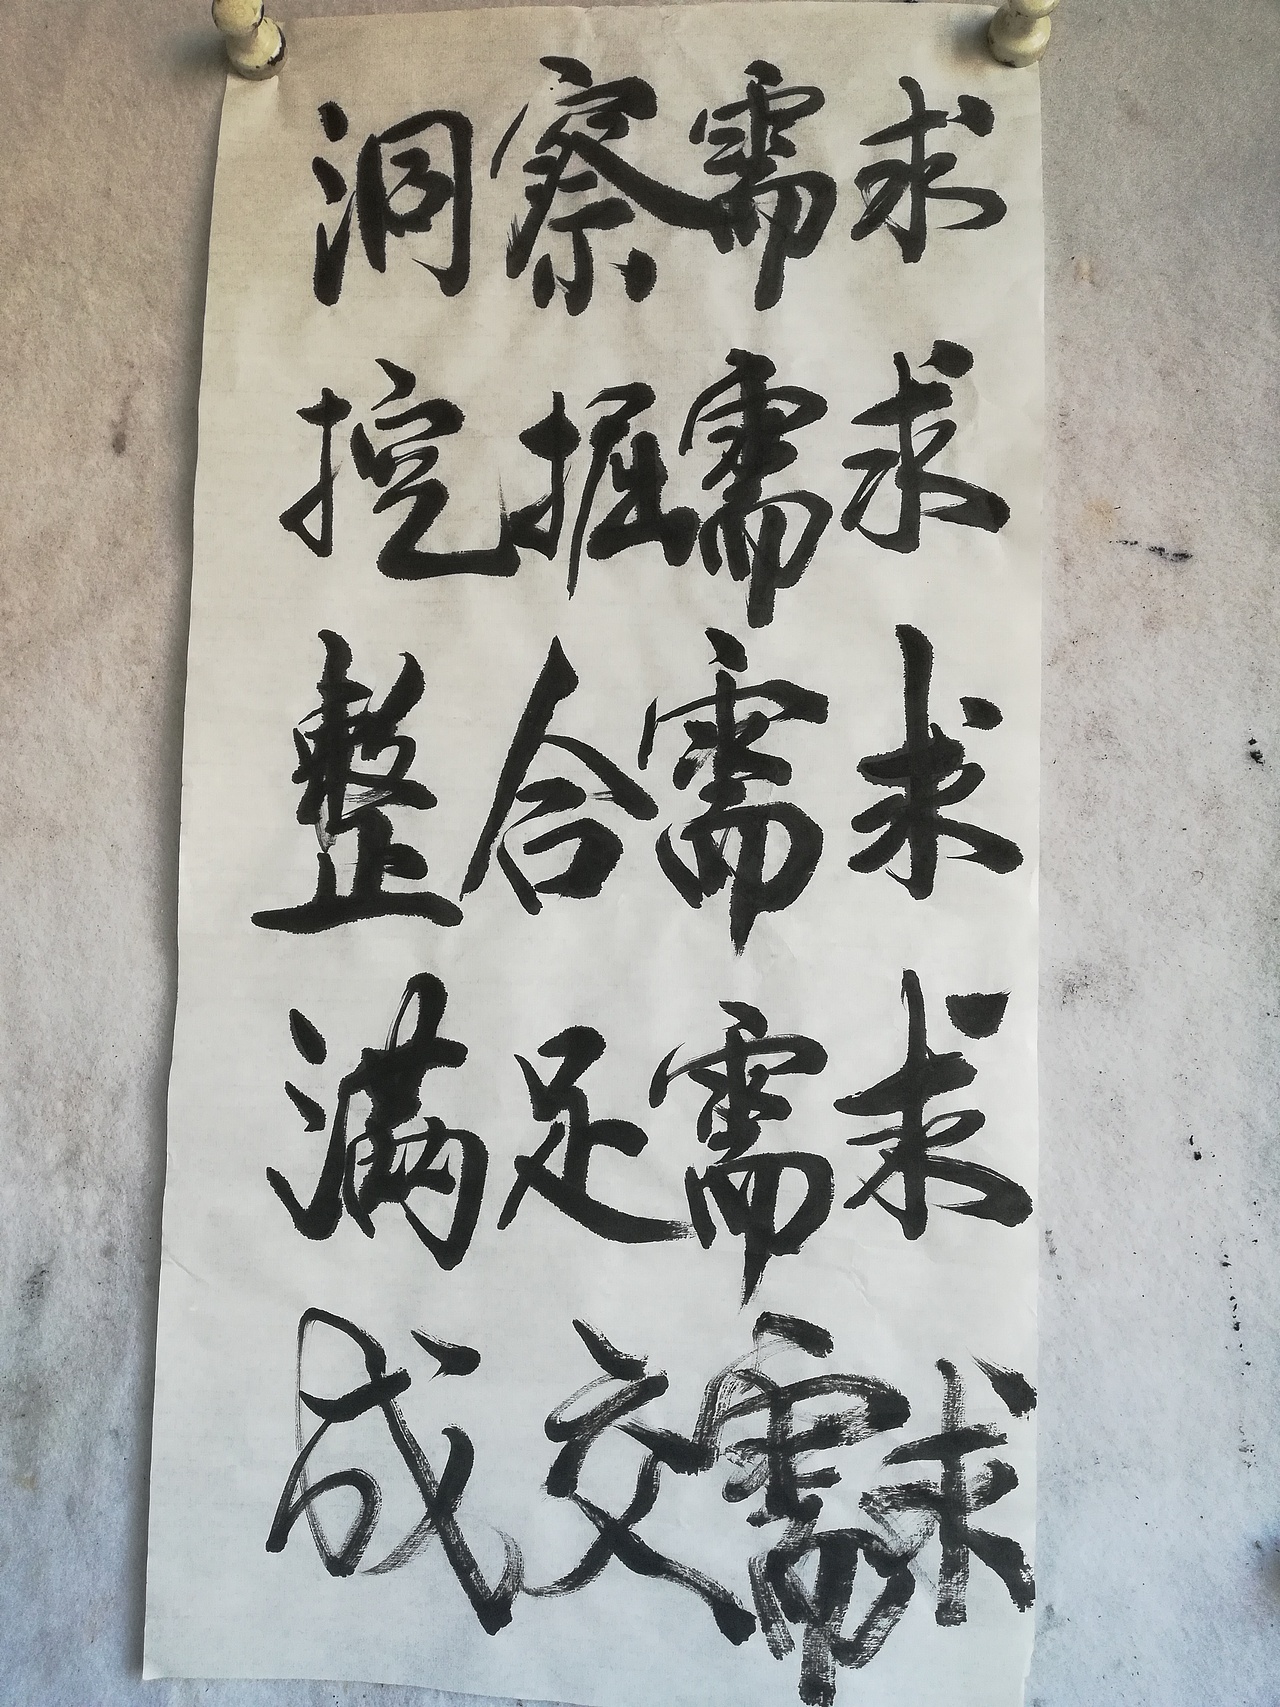 洞察需求
挖掘需求
整合需求
满足需求
成交需求